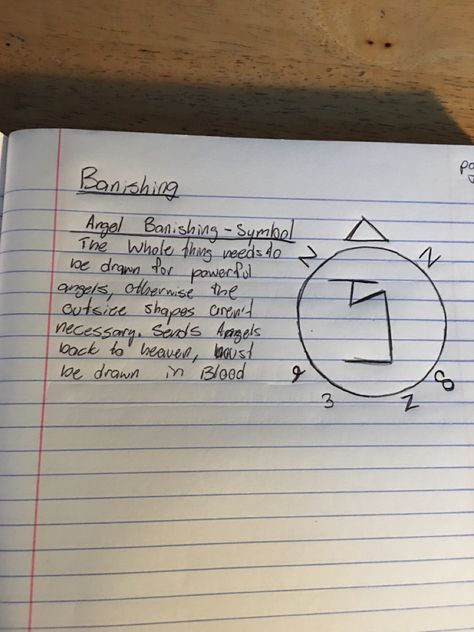 Banishing
Angel Banishing - Symbol
The whole thing needs to
be drawn for powerful
angels, otherwise the
outside shapes aren't
necessary. Sends Angels
back to heaven, must
be drawn in Blood